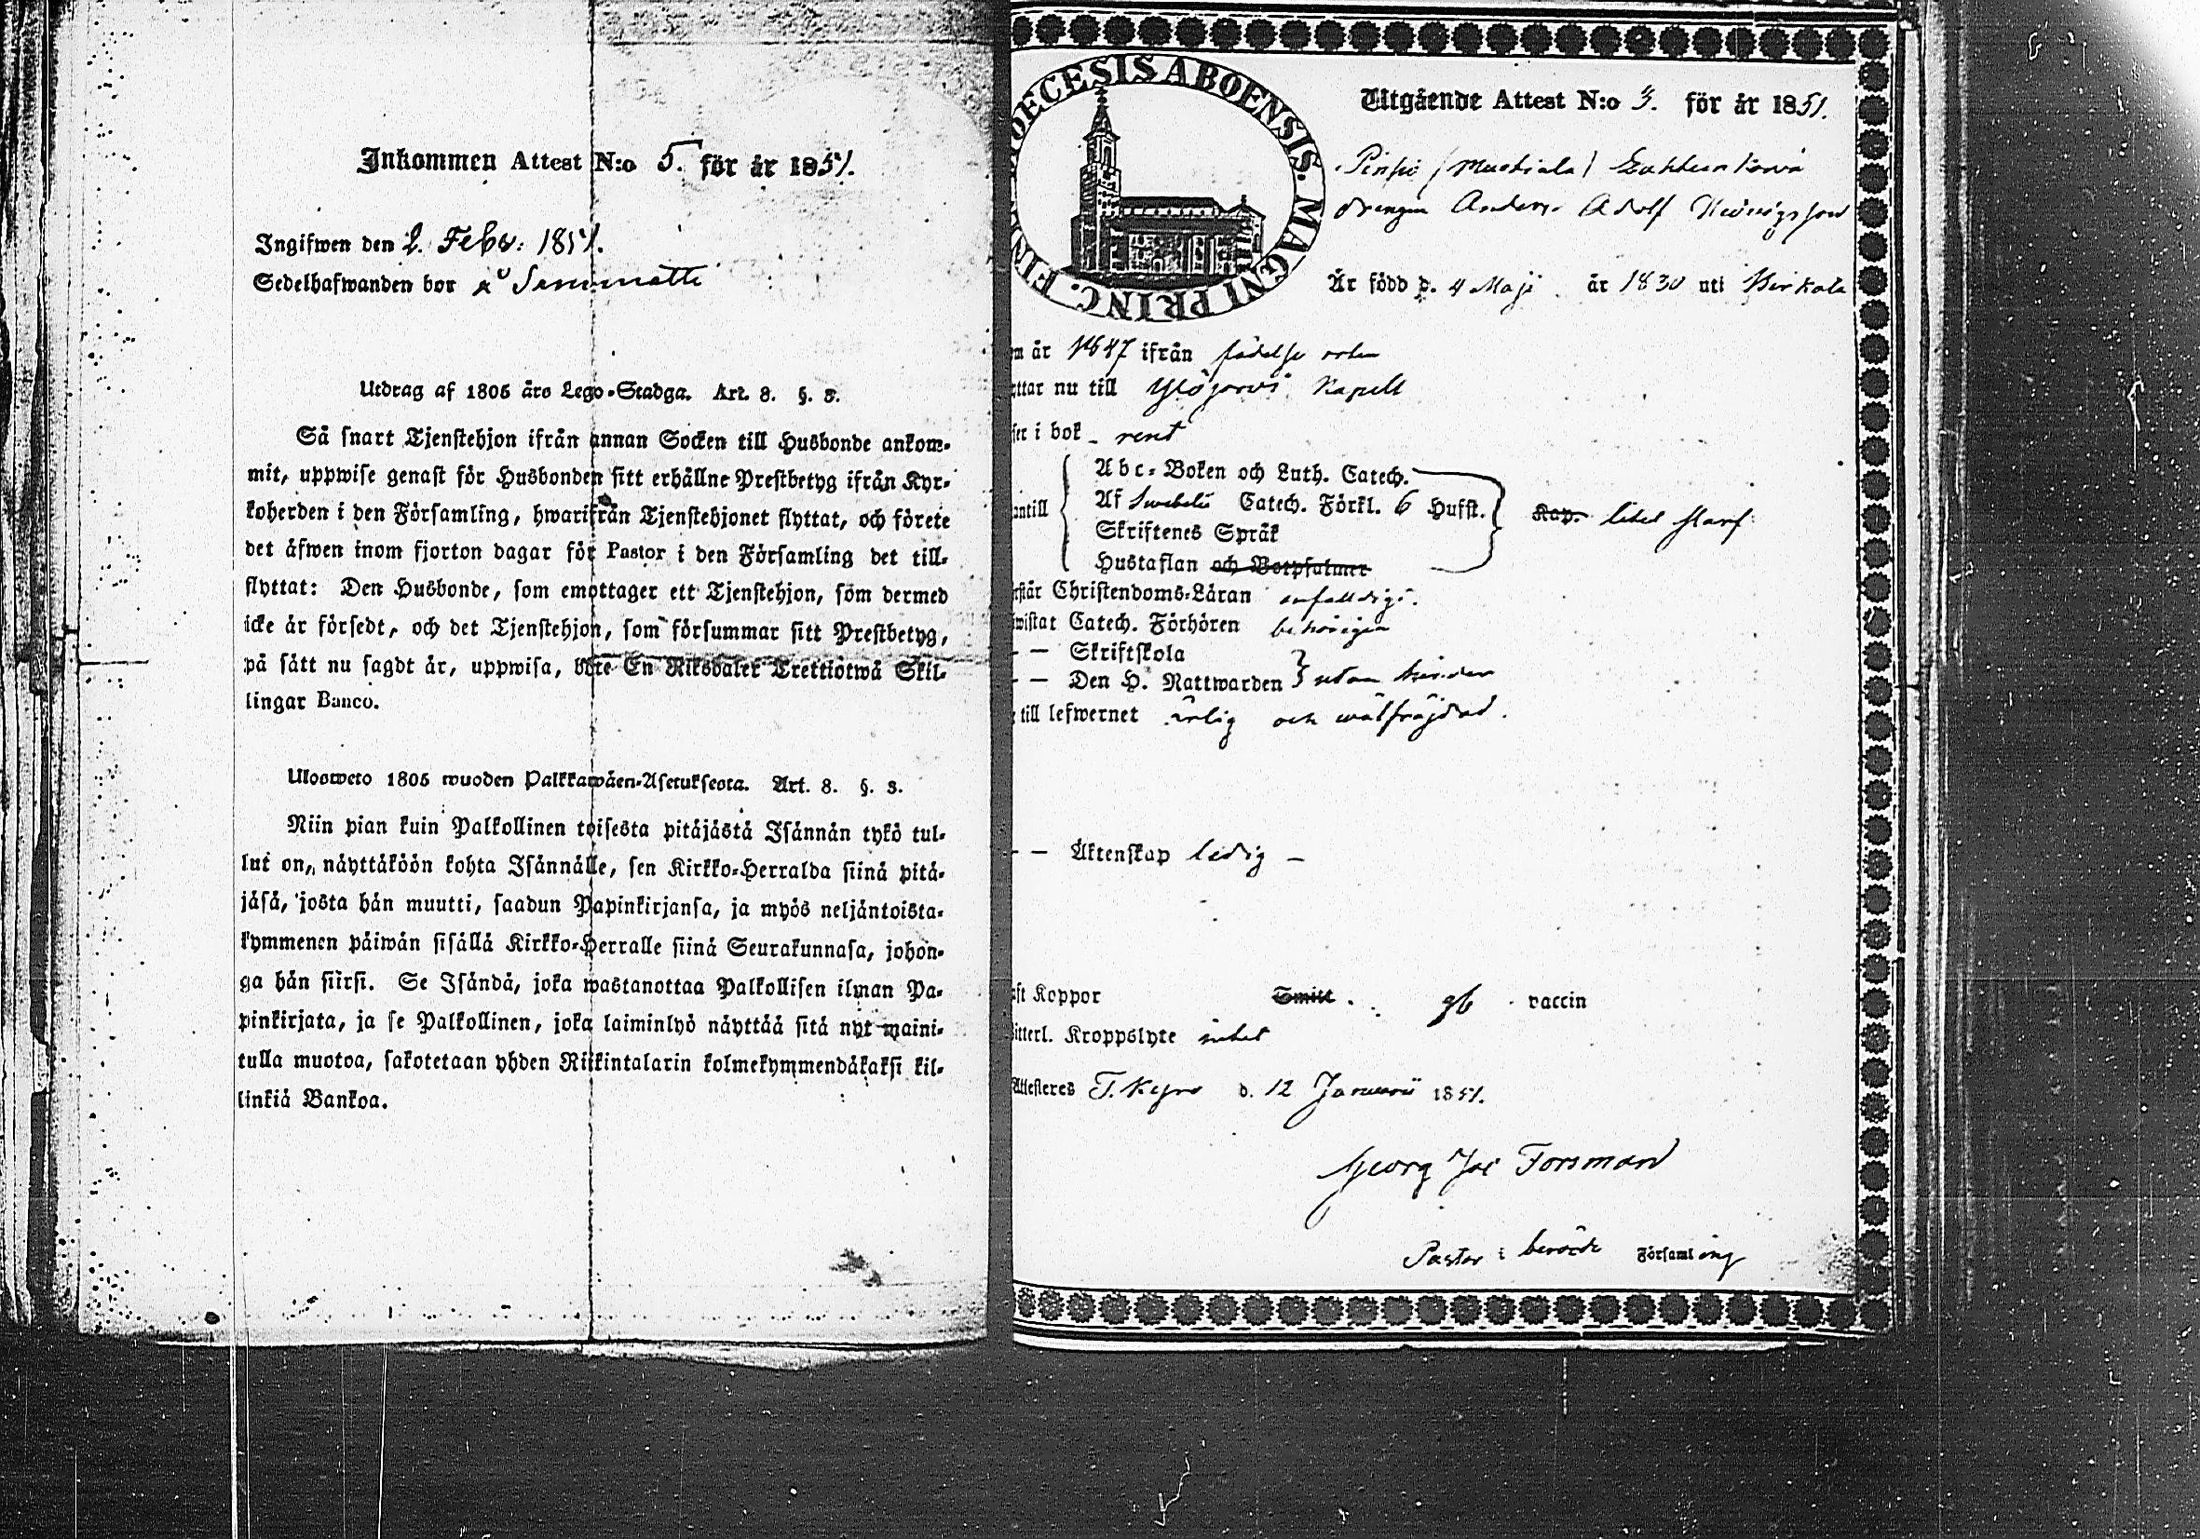 Inkommen Attest N:o 5. för år 1851.
Ingifwen den 2. Febr: 1851.
Sedelhafwanden bor å
Utdrag af 1805 års Lego-Stadga. Art. 8. §. 3.
Så snart Tjenstehjon ifrån annan Socken till Husbonde ankom-
mit, uppwise genast för Husbonden sitt erhållne Prestbetyg ifrån Kyr-
koherden i den Församling, hwarifrån Tjenstehjonet flyttat, och förete
det äfwen inom fjorton dagar för Pastor i den Församling det till-
flyttat: Den Husbonde, som emottager ett Tjenstehjon, som dermed
icke är försedt, och det Tjenstehjon, som försummar sitt Prestbetyg,
på sätt nu sagdt är, uppwisa, böte En Riksdaler Trettiotwå Skil-
lingar Banco.
Ulosweto 1805 wuoden Palkkawäen-Asetuksesta. Art. 8. §. 3.
Niin pian kuin Palkollinen toisesta pitäjästä Isännän tykö tul-
lut on, näyttäköön kohta Isännälle, sen Kirkko-Herralda siinä pitä-
jäsä, josta hän muutti, saadun Papinkirjansa, ja myös neljäntoista-
kymmenen päiwän sisällä Kirkko-Herralle siinä Seurakunnasa, johon-
ga hän siirsi. Se Isändä, joka wastanottaa Palkollisen ilman Pa-
pinkirjata, ja se Palkollinen, joka laiminlyö näyttää sitä nyt maini-
tulla muotoa, sakotetaan yhden Riikintalarin kolmekymmendäkaksi kil-
linkiä Bankoa.
DIOECESIS ABOENSIS. MAGNI PRINC. FIN
Utgående Attest N:o 3. för år 1851.
Pinsiö (Muchiala)
drengen Anders Adolf Hedvigsson
Är född d. 4 Maji år 1830 uti Birkala
en år 1847 ifrån födelse orten
ttar nu till Ylöjärvi Kapell
ser i bok - rent
antill
Abc-Boken och Luth. Catech.
Af Svebelii Catech. Förkl. 6 Hufst.
Skriftenes Språk
Hustaflan och Botpsalmer
Kap. litet svarf
rstår Christendoms-Läran enfaldigt.
wistat Catech. Förhören behörigen
- - Skriftskola
- - Den H. Nattwarden } utan hinder
till lefwernet ärlig och wälfräjdad.
- - Äktenskap ledig -
ft Koppor Smitt. gb vaccin
itterl. Kroppslyte intet
Attesteres T. Kyro d. 12 Januarii 1851.
Georg Jac Forsman
Pastor i berörde Församling